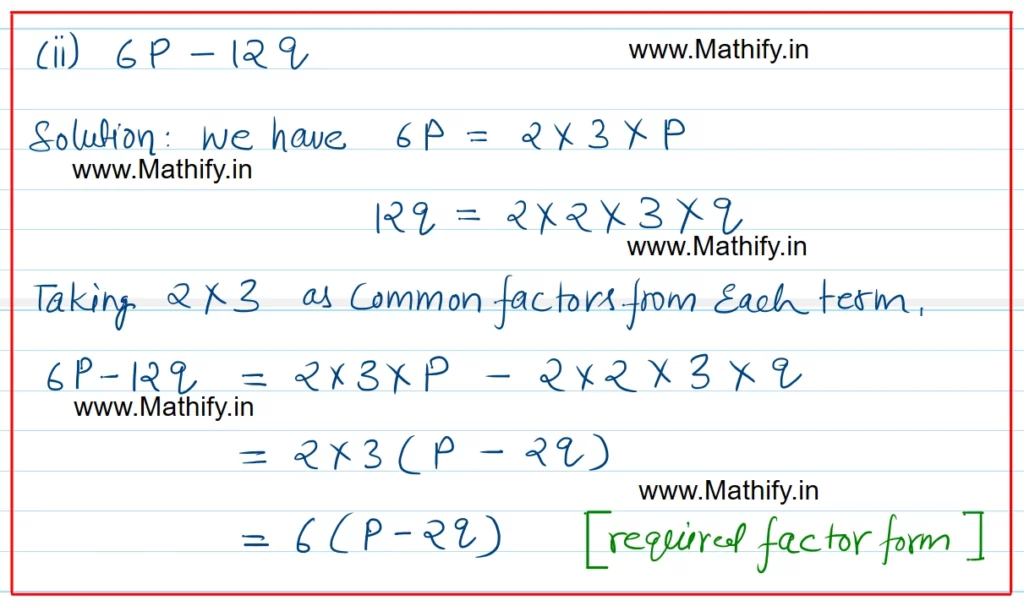 (ii) 6P - 12q
www.Mathify.in
Solution: we have 6P = 2 × 3 × P
www.Mathify.in
12q = 2 × 2 × 3 × q
www.Mathify.in
Taking 2 × 3 as common factors from Each term,
6P - 12q = 2 × 3 × P - 2 × 2 × 3 × q
www.Mathify.in
= 2 × 3 (P - 2q)
www.Mathify.in
= 6 (P - 2q) [required factor form]